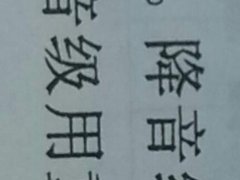 。降音
级用